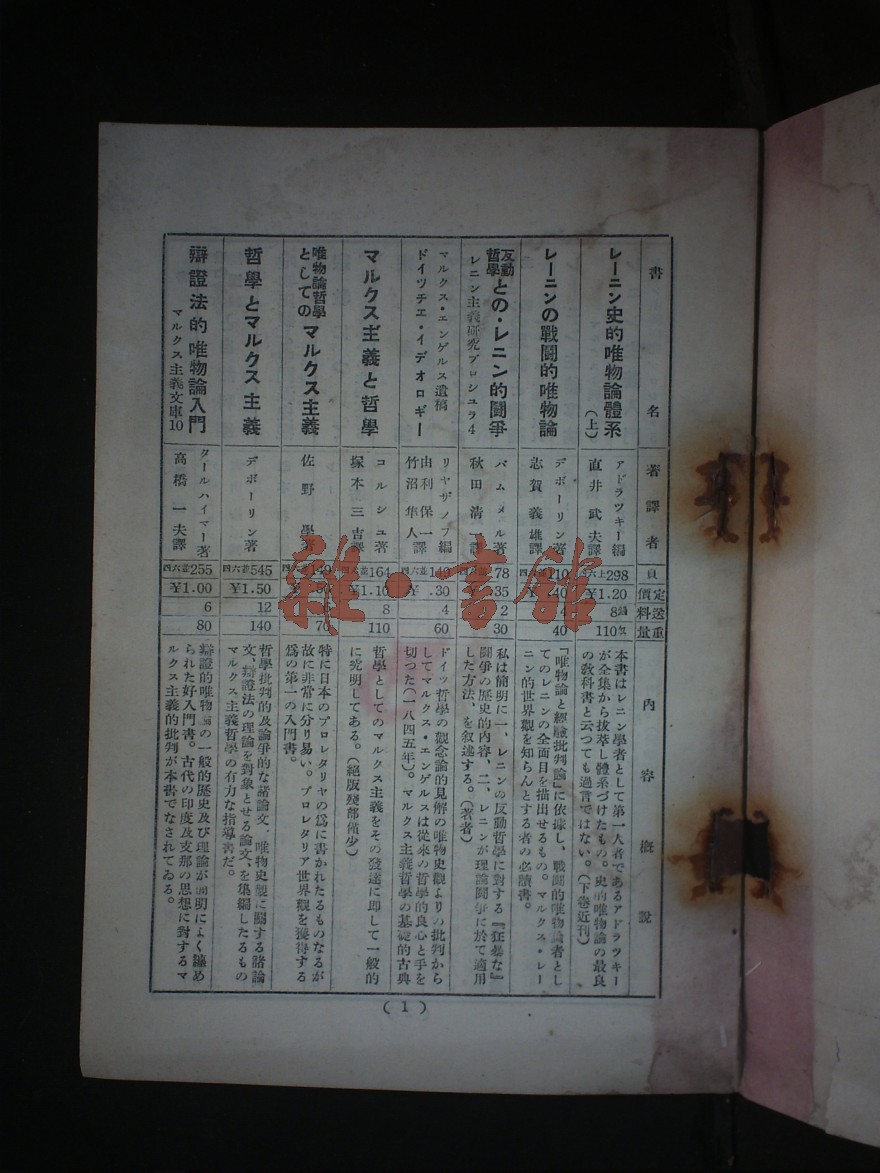 書名
著譯者
頁
定價
送料
重量
內容概說
レーニン史的唯物論體系
(上)
アドラツキー編
直井武夫譯
四六上298
¥1.20
8
110
本書はレニン學者として第一人者であるアドラツキー
が全集から拔萃し體系づけたもの。史的唯物論の最良
の敎科書と云つても過言ではない。(下卷近刊)
レーニンの戰鬪的唯物論
デボーリン著
志賀義雄譯
110
40
4
40
『唯物論と經驗批判論』に依據し、戰鬪的唯物論者とし
てのレニンの全面目を描出せるもの。マルクス・レー
ニン的世界觀を知らんとする者の必讀書。
反動哲學との・レニン的鬪爭
レニン主義硏究ブロシユラ4
バムメル著
秋田淸一譯
78
35
2
30
私は簡明に一、レニンの反動哲學に對する『狂暴な』
鬪爭の歷史的內容、二、レニンが理論鬪爭に於て適用
した方法、を叙述する。(著者)
マルクス・エンゲルス遺稿
ドイツチエ・イデオロギー
リヤザノフ編
由利保一
竹沼隼人譯
140
¥ .30
4
60
ドイツ哲學の觀念論的見解の唯物史觀よりの批判から
してマルクス・エンゲルスは從來の哲學的良心と手を
切つた(一八四五年)。マルクス主義哲學の基礎的古典
マルクス主義と哲學
コルシユ著
塚本三吉譯
164
¥1.10
8
110
哲學としてのマルクス主義をその發達に卽して一般的
に究明してある。(絕版殘部僅少)
唯物論哲學としてのマルクス主義
佐野學著
四六並149
70
特に日本のプロレタリヤの爲に書かれたるものなるが
故に非常に分り易い。プロレタリア世界觀を獲得する
爲の第一の入門書。
哲學とマルクス主義
デボーリン著
四六並545
¥1.50
12
140
哲學批判的及論爭的な諸論文、唯物史觀に關する諸論
文、辯證法の理論を對象とせる論文、を集編したるもの
マルクス主義哲學の有力な指導書だ。
辯證法的唯物論入門
マルクス主義文庫10
タールハイマー著
高橋一夫譯
四六並255
¥1.00
6
80
辯證的唯物論の一般的歷史及び理論が簡明によく纏め
られた好入門書。古代の印度及支那の思想に對するマ
ルクス主義的批判が本書でなされてゐる。
(1)
雜·書館